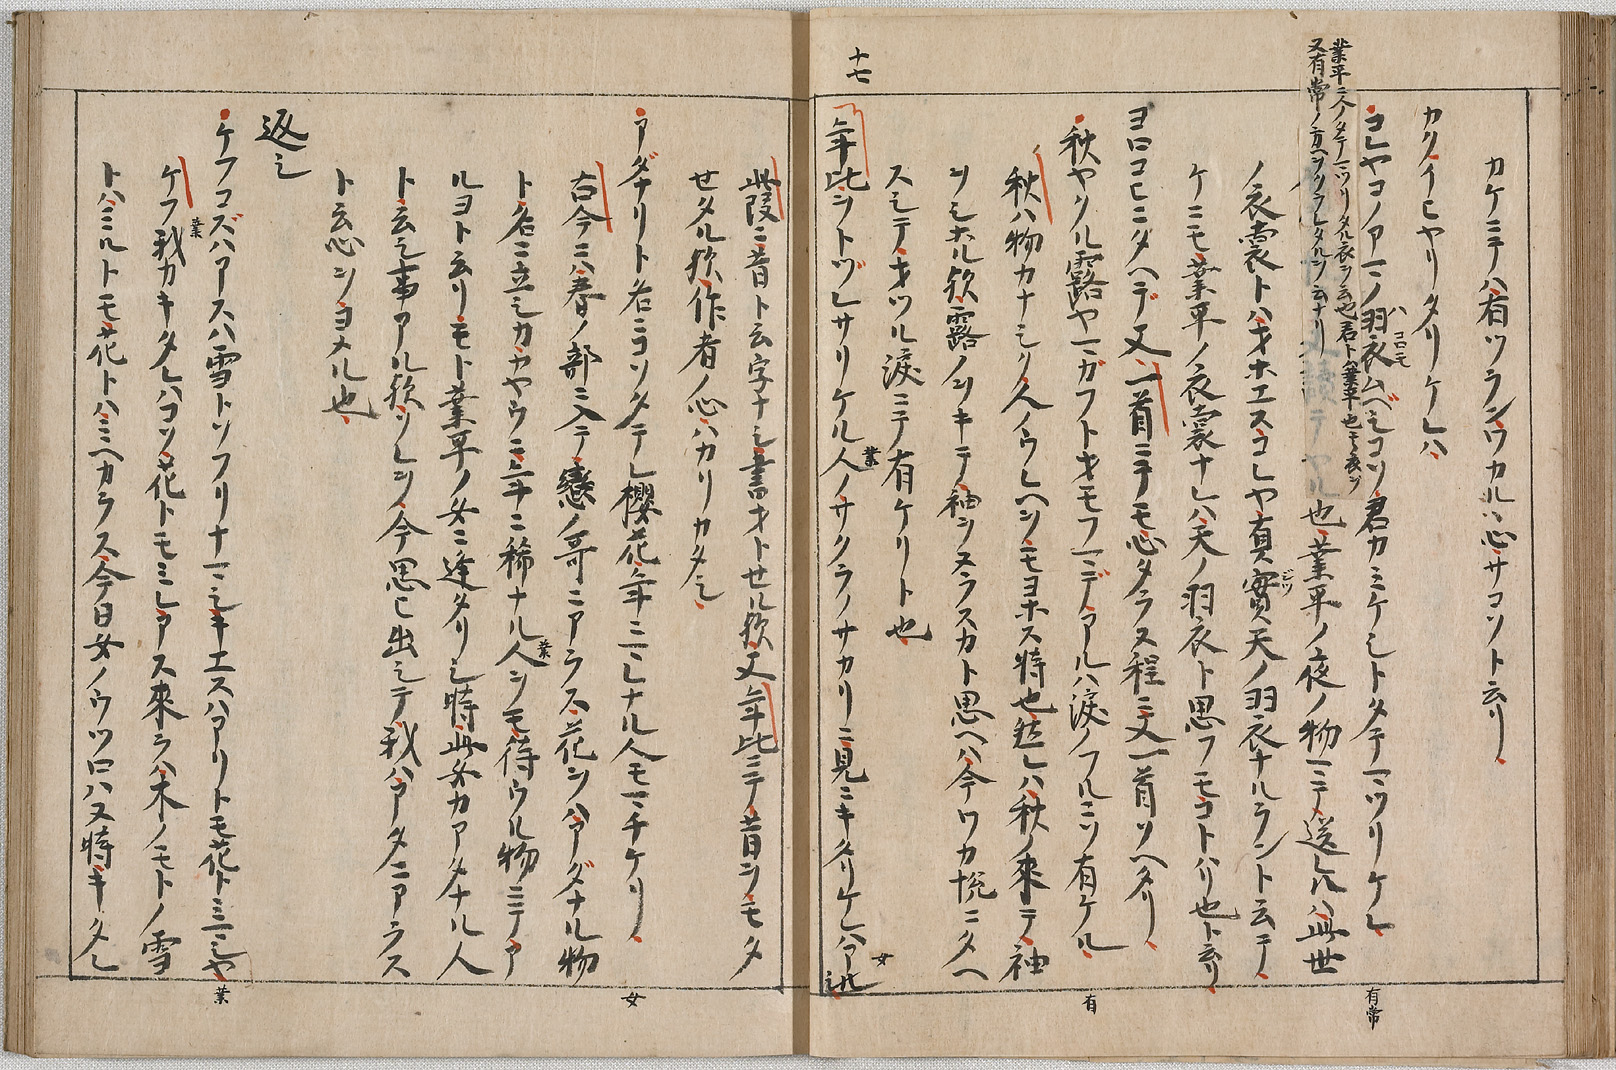 カケニテハ有ツランワカルヽ心サコソト云リ
カクイヒヤリタリケレハ
コレヤコノアマノ羽衣ムヘシコソ君カミケシトタテマツリケレ
ハコロモ
有常
業平ニ人ノタテマツリタル衣ヲ云也君ト業平也モ衣ヲ
又有常ノ方ヘヲクラレタルヲ云ナリ
也業平ノ夜ノ物マテ送レルハ此世
ノ衣裳トハオホエスコレヤ真實天ノ羽衣ナルラント云テ
ジツ
ケニモ業平ノ衣裳ナレハ天ノ羽衣ト思フモコトハリ也ト云リ
ヨロコヒニタヘデ又一首ニテモ心タラヌ程ニ又一首ソヘタリ
秋ヤクル露ヤマガフトオモフマデアルハ涙ノフルニソ有ケル
有
秋ハ物カナシク人ノウレヘヲモヨホス時也然レハ秋ノ來テ袖
ヲシホル歟露ノヲキテ袖ヲヌラスカト思ヘハ今ワカ悦ニタヘ
スシテオツル涙ニテ有ケリト也
十七
年比ヲトヅレサリケル人ノサクラノサカリニ見ニキタリケレハアルシ
業
女
此段ニ昔ト云字ナシ書オトセル歟又年比ニテ昔ヲモタ
セタル歟作者ノ心ハカリカタシ
アダナリト名ニコソタテレ櫻花年ニマレナル人モマチケリ
女
古今ニハ春ノ部ニ入テ戀ノ哥ニアラス花ヲハアダナル物
ト名ニ立シカカヤウニ年ニ稀ナル人ヲモ待ウル物ニテア
業
ルヨト云リモト業平ノ女ニ逢タリシ時此女カアタナル人
ト云シ事アル歟ソレヲ今思ヒ出シテ我ハアタニアラス
ト云心ヲヨメル也
返シ
ケフコズハアスハ雪トソフリナマシキエスハアリトモ花トミマシヤ
業
ケフ我カキタレハコソ花トモミレアス來ラハ木ノモトノ雪
業
トハミルトモ花トハミヘカラス今日女ノウツロハヌ時キタレ